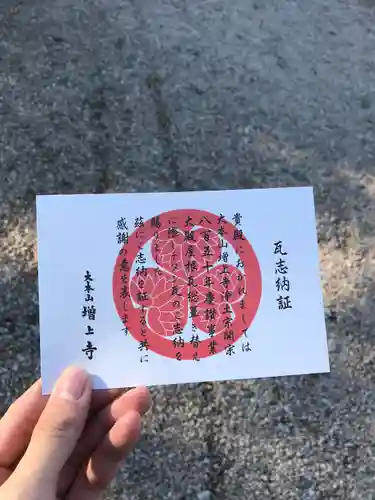 瓦志納証
貴殿におかれましては
大本山増上寺浄土宗開宗
八百五十年慶讃事業
大殿屋根瓦総葺き替え
に際し一枚のご志納を
賜りました
茲にご志納の証しと共に
感謝の意を表します
大本山 増上寺